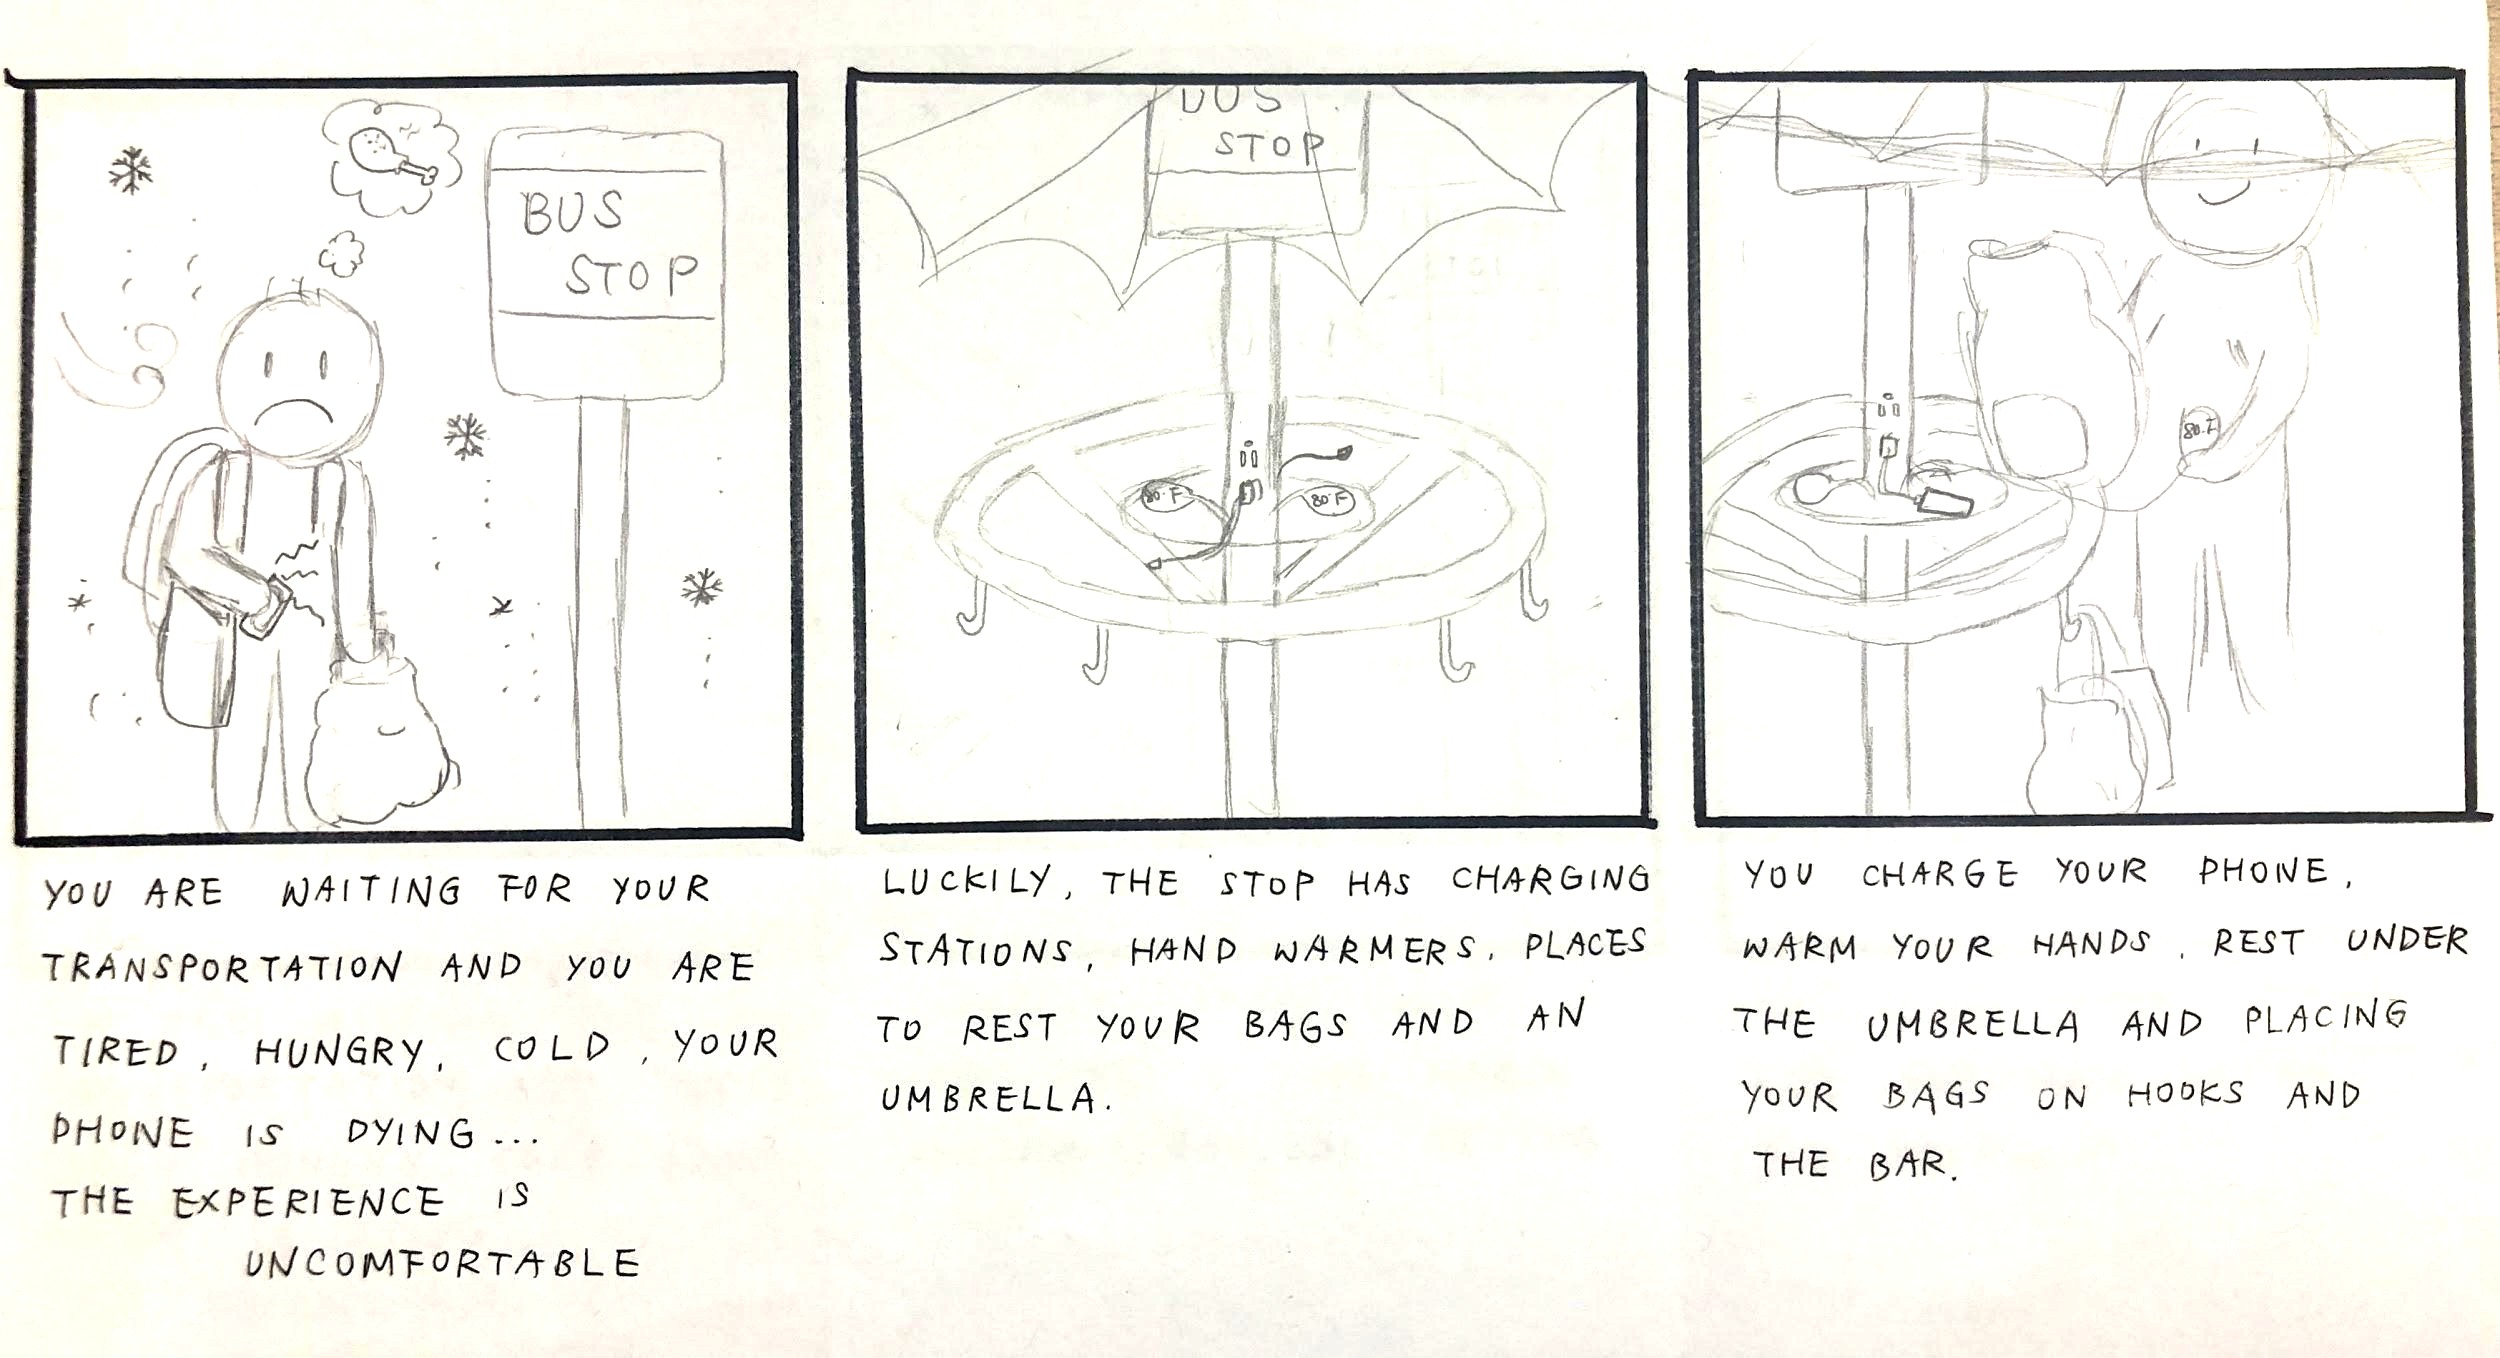 BUS
STOP
YOU ARE WAITING FOR YOUR
TRANSPORTATION AND YOU ARE
TIRED, HUNGRY, COLD, YOUR
PHONE IS DYING...
THE EXPERIENCE IS
UNCOMFORTABLE
BUS
STOP
80°F
80°F
LUCKILY, THE STOP HAS CHARGING
STATIONS, HAND WARMERS, PLACES
TO REST YOUR BAGS AND AN
UMBRELLA.
80°F
YOU CHARGE YOUR PHONE,
WARM YOUR HANDS, REST UNDER
THE UMBRELLA AND PLACING
YOUR BAGS ON HOOKS AND
THE BAR.